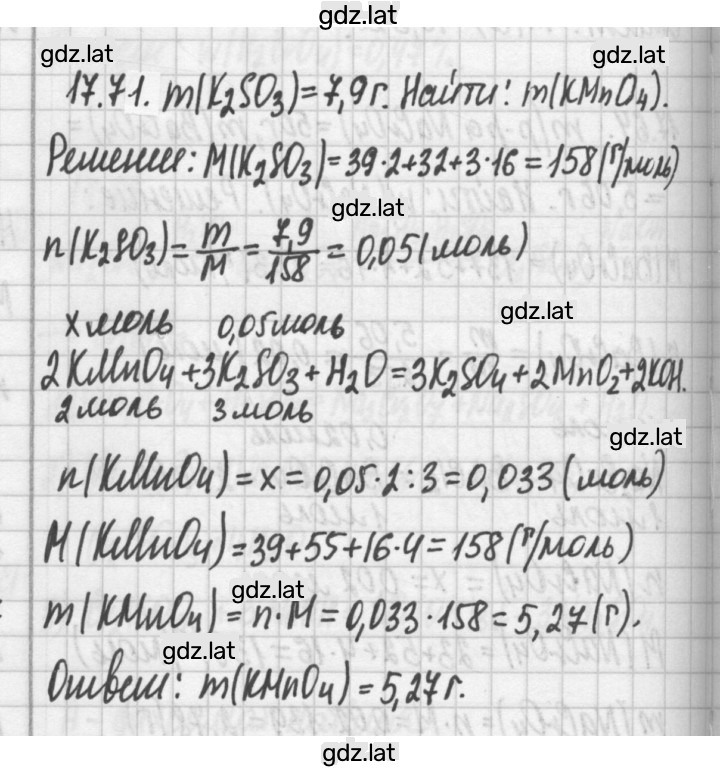 gdz.lat
gdz.lat gdz.lat
17.71. m(K₂SO₃)=7,9г. Найти: m(KMnO₄).
Решение: M(K₂SO₃)=39·2+32+3·16=158(г/моль)
gdz.lat
n(K₂SO₃)=m/M=7,9/158=0,05(моль)
gdz.lat
x моль 0,05моль
2KMnO₄+3K₂SO₃+H₂O=3K₂SO₄+2MnO₂+2KOH.
2 моль 3 моль
gdz.lat
n(KMnO₄)=x=0,05·2:3=0,033(моль)
M(KMnO₄)=39+55+16·4=158(г/моль)
gdz.lat
m(KMnO₄)=n·M=0,033·158=5,27(г).
gdz.lat
Ответ: m(KMnO₄)=5,27г.
gdz.lat